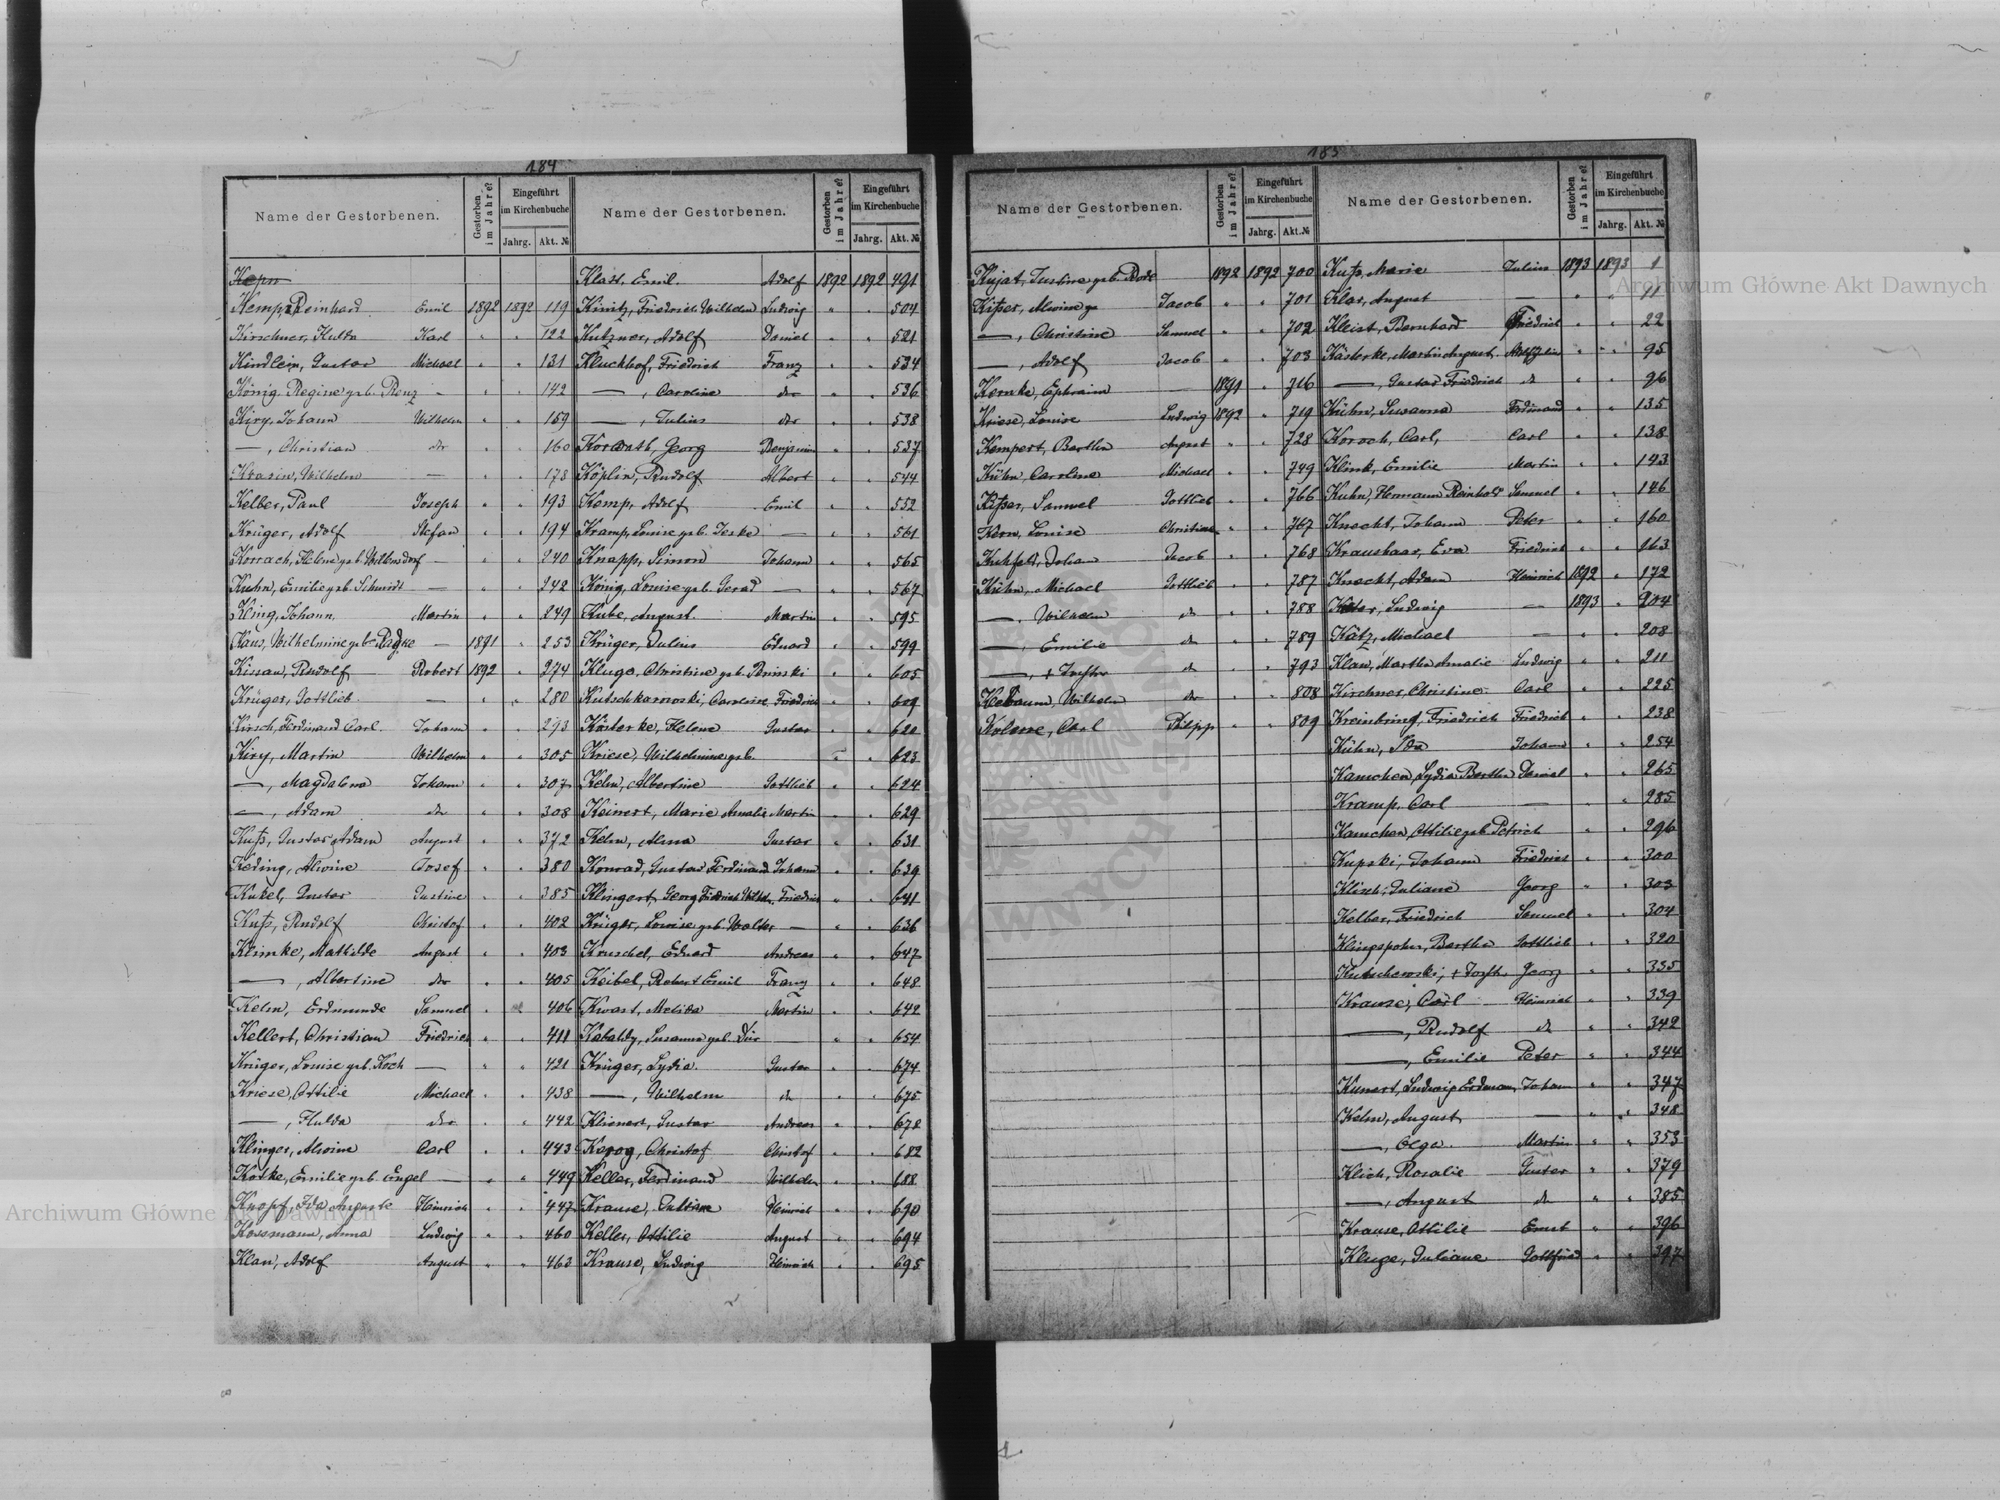 184
Name der Gestorbenen. Gestorben im Jahre? Eingeführt im Kirchenbuche Jahrg. Akt. №
Kemp, Reinhard Emil 1892 1892 119
Kirschner, Hulda Karl " " 122
Kindlein, Gustav Michael " " 131
König, Regine geb. Renz - " " 142
Kiry, Johann Wilhelm " " 159
—, Christian do " " 160
Krasin, Wilhelm — " " 178
Kelber, Paul Joseph " " 193
Krüger, Adolf Stefan " " 194
Korrach, Helene geb. Willmsdorf — " " 240
Kuhn, Emilie geb. Schmidt — " " 242
Kling, Johann Martin " " 249
Kissau, Rudolf Robert 1892 " 274
Krüger, Gottlieb — " " 280
Kirsch, Ferdinand Carl. Johann " " 293
Kiry, Martin Wilhelm " " 305
—, Magdalena Johann " " 307
—, Adam do " " 308
Kuß, Gustav Adam August " " 372
Keding, Alwine Josef " " 380
Kukel, Gustav Justine " " 385
Kuß, Rudolf Christof " " 402
Klimke, Mathilde August " " 403
—, Albertine do " " 405
Kelm, Erdmunde Samuel " " 406
Kellert, Christian Friedrich " " 411
Krüger, Louise geb. Koch — " " 421
Kriese, Ottilie Michael " " 438
—, Hulda do " " 442
Klinger, Alwine Carl " " 443
Kotke, Emilie geb. Engel — " " 449
Knopf, Ida Auguste Heinrich " " 447
Kossmann, Anna Ludwig " " 460
Klan, Adolf August " " 463
Name der Gestorbenen. Gestorben im Jahre? Eingeführt im Kirchenbuche Jahrg. Akt. №
Klatt, Emil. Adolf 1892 1892 491
Kinitz, Friedrich Wilhelm Ludwig " " 504
Kutzner, Adolf Daniel " " 521
Kluckhof, Friedrich Franz " " 534
—, Caroline do " " 536
—, Julius do " " 538
Konrath, Georg Benjamin " " 537
Köplin, Rudolf Albert " " 544
Kemp, Adolf Emil " " 552
Kramp, Louise geb. Jeske — " " 561
Knapp, Simon Johann " " 565
König, Louise geb. Gerad — " " 567
Kube, August. Martin " " 595
Krüger, Julius Eduard " " 599
Kluge, Christine geb. Bninski " " 605
Kutschkarnoski, Caroline Friedrich " " 609
Kösterke, Helene Gustav " " 620
Kriese, Wilhelmine geb. — " 623
Kelm, Albertine Gottlieb " " 624
Keinert, Marie Amalie Martin " " 629
Kelm, Alma Gustav " " 631
Konrad, Gustav Ferdinand Johann " " 639
Klingert, Georg Friedrich Wilhelm Friedrich " " 641
Krüger, Louise geb. Wolter — " " 636
Kruschel, Eduard Andreas " " 647
Keibel, Robert Emil Franz " " 648
Kwast, Melida Martin " " 642
Kabaldy, Susanna geb. Dür — " " 654
Krüger, Lydia. Gustav " " 674
—, Wilhelm do " " 675
Klienert, Gustav Andreas " " 678
Christof Christof " " 682
Keller, Ferdinand Wilhelm " " 688
Krause, Juliane Heinrich " " 690
Keller, Ottilie August " " 694
Krause, Ludwig Heinrich " " 695
185
Name der Gestorbenen. Gestorben im Jahre? Eingeführt im Kirchenbuche Jahrg. Akt. №
Kujat, Justine geb. Rode 1892 1892 700
Kißer, Alwine Jacob " " 701
—, Christine Samuel " " 702
—, Adolf Jacob " " 703
Kemke, Ephraim — 1891 " 716
Kriese, Louise Ludwig 1892 " 719
Kempert, Bertha August " " 728
Kühn, Caroline Michael " " 749
Kißer, Samuel Gottlieb " " 766
Kern, Louise Christian " " 767
Kuhfeld, Johan Jacob " " 768
Kühn, Michael Gottlieb " " 787
—, Wilhelm do " " 788
—, Emilie do " " 789
—, + Tochter do " " 793
Klebaum, Wilhelm do " " 808
Carl Philipp " " 809
Name der Gestorbenen. Gestorben im Jahre? Eingeführt im Kirchenbuche Jahrg. Akt. №
Kuß, Marie Julius 1893 1893 1
Klar, August — " " 11
Kleist, Bernhard Friedrich " " 22
Kästerke, Martin August " " 95
—, Gustav Friedrich do " " 96
Kühn, Susanna Ferdinand " " 135
Koroch, Carl, Carl " " 138
Klink, Emilie Martin " " 143
Kuhn, Hermann Reinhold Samuel " " 146
Knecht, Johann Peter " " 160
Kraushaar, Eva Friedrich " " 163
Knecht, Adam Heinrich 1892 " 172
Ludwig — 1893 " 204
Kätz, Michael — " " 208
Klan, Martha Amalie Ludwig " " 211
Kirchner, Christine Carl " " 225
Kreinbring, Friedrich Friedrich " " 238
Kühn, Ida Johann " " 254
Kamchen, Lydia Bertha Daniel " " 265
Kramp, Carl — " 285
Kamchen, Ottilie geb. Petrich " " 296
Kupski, Johann Friedrich " " 300
Klish, Juliane Georg " " 303
Kelber, Friedrich Samuel " " 304
Klingspohn, Bertha Gottlieb " " 320
Kutschewski, + Tochter Georg " " 335
Krause, Carl Heinrich " " 339
—, Rudolf do " " 342
—, Emilie Peter " " 344
Kunert, Ludwig Erdmann Johann " " 347
Kelm, August — " " 348
—, Olga. Martin " " 353
Klich, Rosalie Gustav " " 379
—, August do " " 385
Krause, Ottilie Ernst " " 396
Kluge, Juliane Gottfried " " 397
Archiwum Główne Akt Dawnych
Archiwum Główne Akt Dawnych